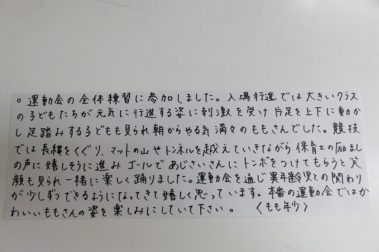 ○ 運動会の全体練習に参加しました。入場行進では大きいクラス
の子どもたちが元気に行進する姿に刺激を受け片足を上下に動か
し足踏みする子どもも見られ朝からやる気満々のももさんでした。競技
では長縄をくぐり、マットの山やトンネルを越えていきながら保育士の励まし
の声に嬉しそうに進みゴールであじさいさんにトンボをつけてもらうと笑
顔も見られ一緒に楽しく踊りました。運動会を通じ異年齢児との関わり
が少しずつできるようになってきて嬉しく思っています。本番の運動会ではか
わいいももさんの姿を楽しみにしていて下さい。 〈もも年少〉